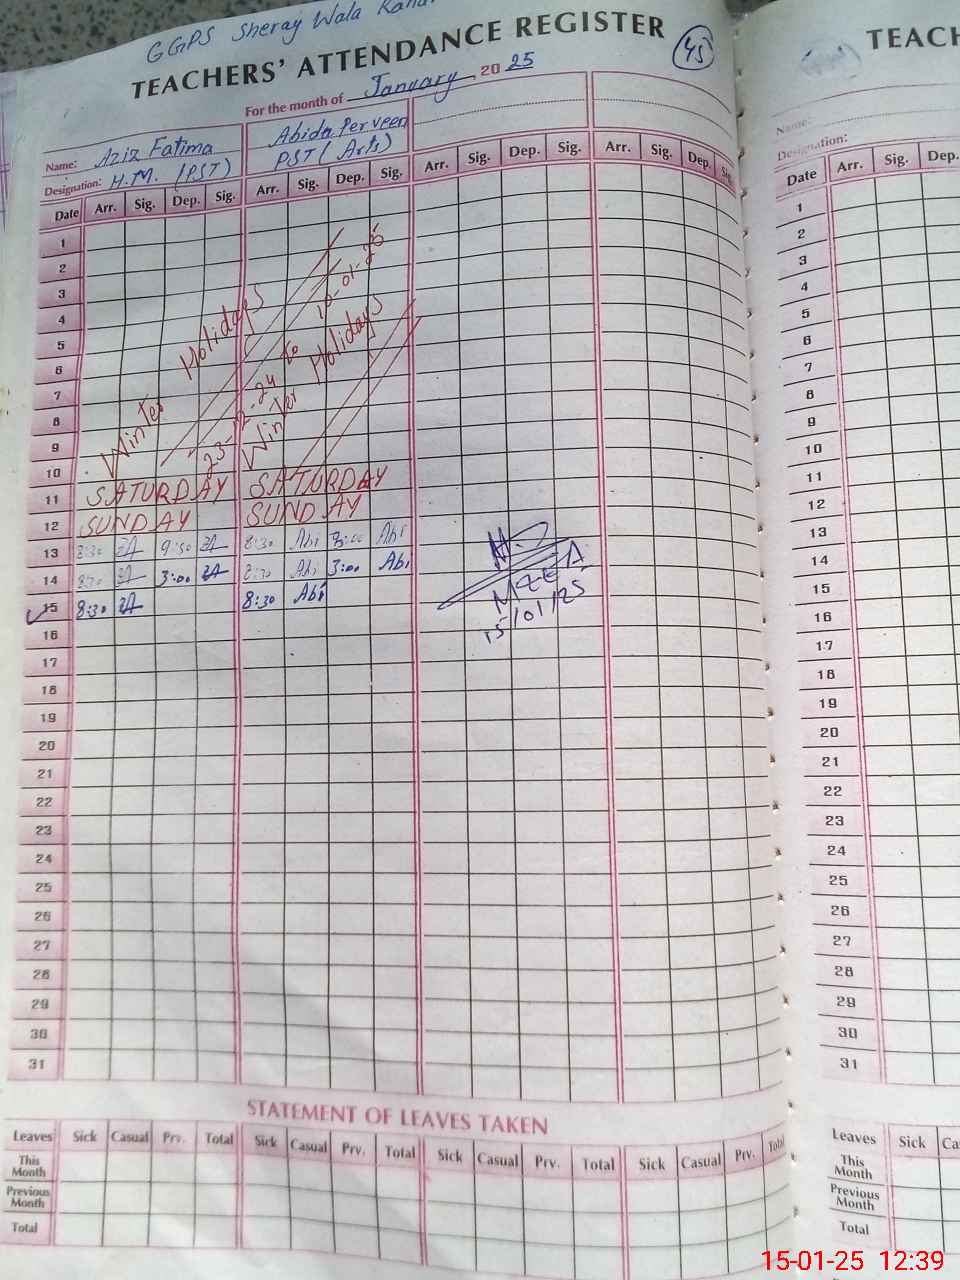 GGPS Sheraj Wala
TEACHERS' ATTENDANCE REGISTER
45
For the month of January 2025
Name: Aziz Fatima
Abida Perveen
Designation: H.M. (PST)
PST (Arts)
Date Arr. Sig. Dep. Sig. Arr. Sig. Dep. Sig. Arr. Sig. Dep. Sig. Arr. Sig. Dep. Sig.
1
2
3
4
5
6
7
8
9
10
Winter Holidays
23-12-24 to 10-01-25
Winter Holidays
11 SATURDAY SATURDAY
12 SUNDAY SUNDAY
13 8:30 ZA ZA 8:30 Abi Abi
14 8:30 ZA 3:00 ZA 8:30 Abi 3:00 Abi
15 8:30 ZA 8:30 Abi
MEEA
15/01/25
16
17
18
19
20
21
22
23
24
25
26
27
28
29
30
31
STATEMENT OF LEAVES TAKEN
Leaves Sick Casual Prv. Total Sick Casual Prv. Total Sick Casual Prv. Total Sick Casual Prv. Total
This Month
Previous Month
Total
TEACH
Name:
Designation:
Date Arr. Sig. Dep.
1
2
3
4
5
6
7
8
9
10
11
12
13
14
15
16
17
18
19
20
21
22
23
24
25
26
27
28
29
30
31
Leaves Sick Ca
This Month
Previous Month
Total
15-01-25 12:39